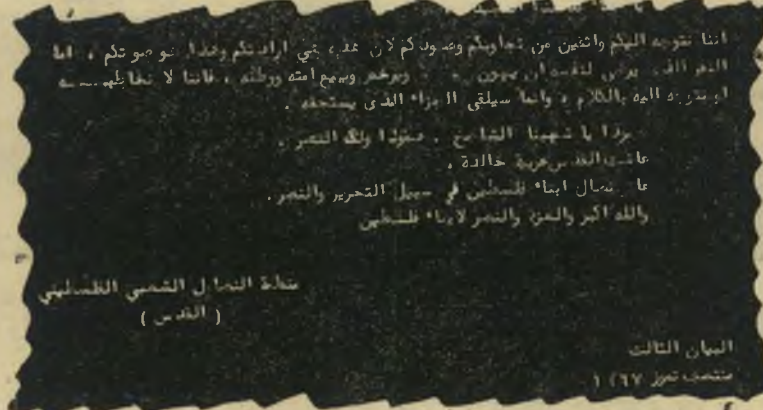 اننا نتوجه اليكم واثقين من تجاوبكم وصمودكم لان هذه هي ارادتكم وهذا هو صوتكم ، اما
النفر الذي يرضى لنفسه ان يهون ويرخص ويبيع امته ووطنه ، فاننا لا نخاطبه
او نتوجه اليه بالكلام وانما سيلقى الجزاء الذي يستحقه .
يا شعبنا الشامخ . صمودا ولك النصر .
عاشت القدس عربية خالدة .
عاش نضال ابناء فلسطين في سبيل التحرير والنصر .
والله اكبر والعزة والنصر لابناء فلسطين
منظمة النضال الشعبي الفلسطيني
( القدس )
البيان الثالث
منتصف تموز ١٩٦٧